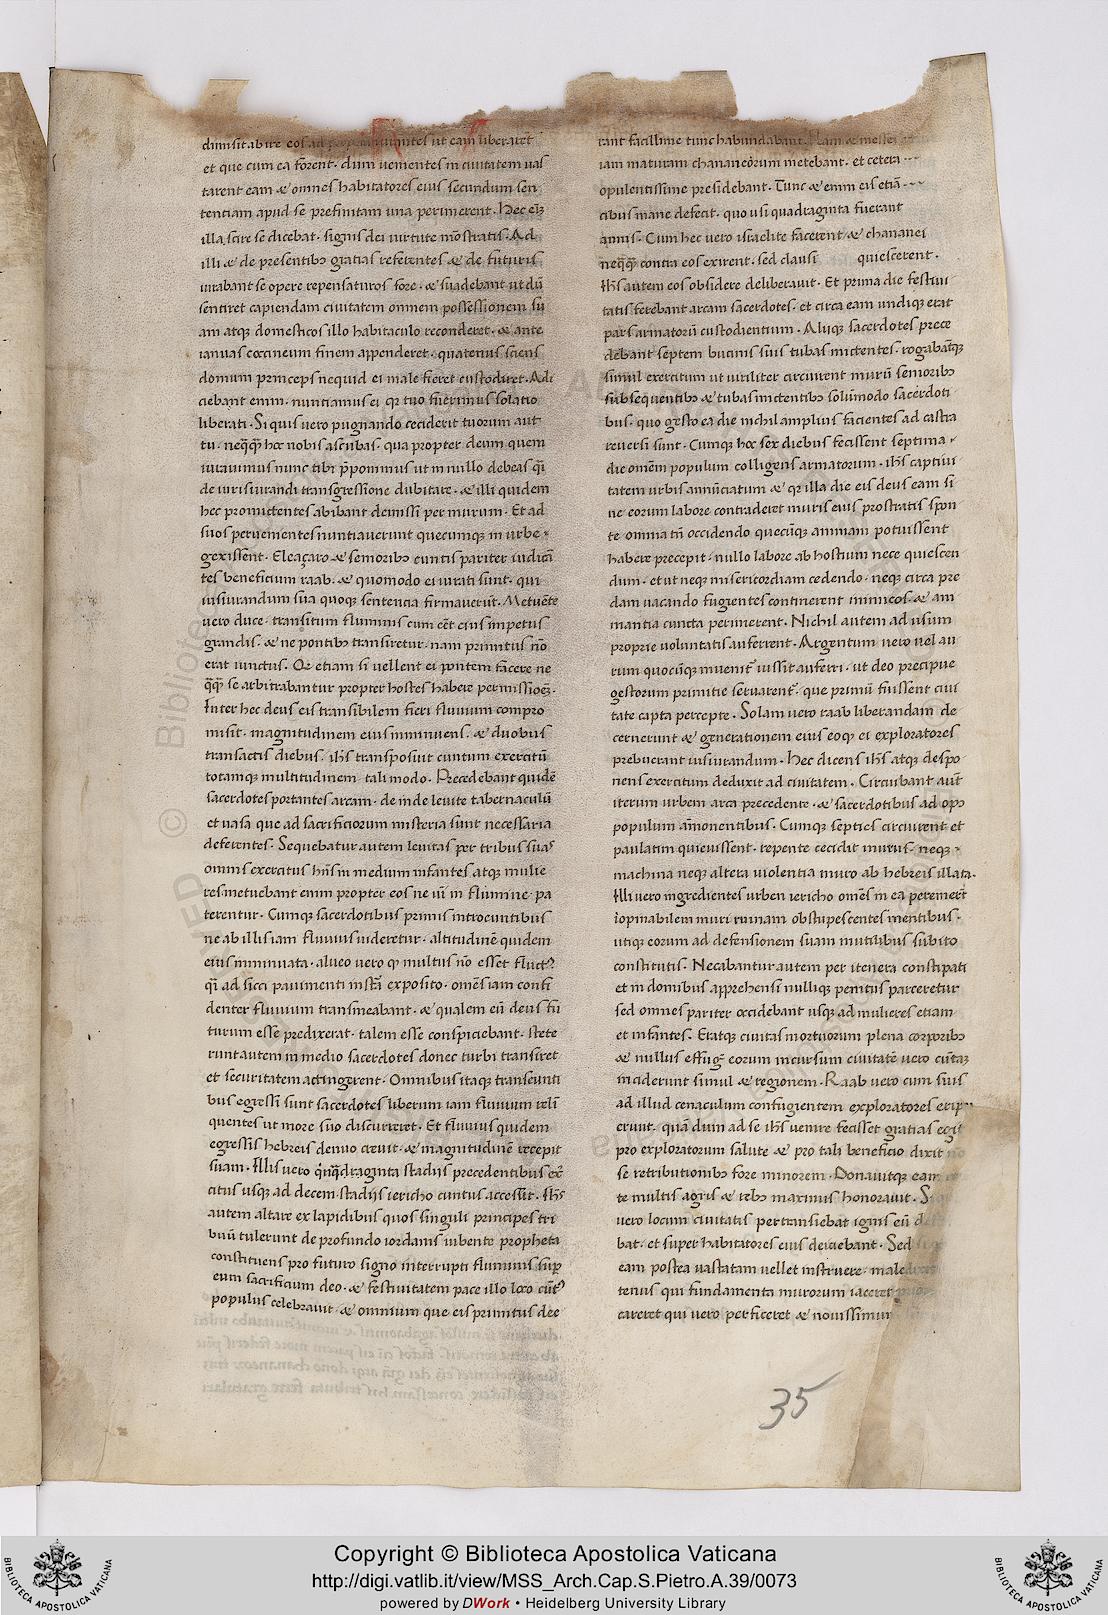 dimisit abire eos ad iurantes ut eam liberarēt
et que cum ea forent. dum uenientes in ciuitatem uas
tarent eam & omnes habitatores eius secundum sen
tentiam apud se prefinitam una perimerent. Hec eī
illa scire se dicebat. signis dei uirtute mōstratis. Ad
illi & de presentibꝫ gratias referentes & de futuris
iurabant se opere repensaturos fore. & suadebant ut dū
sentiret capiendam ciuitatem omnem possessionem su
am atqꝫ domesticos illo habitaculo reconderet. & ante
ianuas coccineum finem appenderet. quatenus sciens
domum princeps nequid ei male fieret custodiret. Adi
ciebant enim. nuntiamus ei qꝛ tuo fuerimus solatio
liberati. Si quis uero pugnando ceciderit tuorum aut
tu. neqꝫqꝫ hoc nobis ascribas. qua propter deum quem
iurauimus nunc tibi p̄ponimus ut in nullo debeas q̄i
de iurisiurandi transgressione dubitare. & illi quidem
hec promittentes abibant demissi per murum. Et ad
suos peruenientes nuntiauerunt quecumqꝫ in urbe
gexissent. Eleaçaro & senioribꝫ cuntis pariter iudicā
tes beneficium raab. & quomodo ei iurati sunt. qui
iusiurandum sua quoqꝫ sentencia firmauerūt. Metuēte
uero duce. transitum fluminis cum cēt eius impetus
grandis. & ne pontibꝫ transiretur. nam primitus nō
erat iunctus. Qꝛ etiam si uellent ei pontem facere ne
q̄q̄ se arbitrabantur propter hostes habere permissioē.
Inter hec deus eis transibilem fieri fluuium compro
misit. magnitudinem eius imminuens. & duobus
transactis diebus. ih̄s transposuit cuntum exercitū
totamqꝫ multitudinem tali modo. Precedebant quidē
sacerdotes portantes arcam. de inde leuite tabernaculū
et uasa que ad sacrificiorum misteria sunt necessaria
deferentes. Sequebatur autem leuitas per tribus suas
omnis exercitus hn̄s in medium infantes atqꝫ mulie
res. metuebant enim propter eos ne ui in flumine pa
terentur. Cumqꝫ sacerdotibus primis introeuntibus
ne ab illis iam fluuius uideretur. altitudinē quidem
eius imminuata. alueo uero qꝫ multus nō esset fluctꝰ
q̄i ad sicci pauimenti instā exposito. omēs iam confi
denter fluuium transmeabant. & qualem eū deus fu
turum esse predixerat. talem esse conspiciebant. stete
runt autem in medio sacerdotes donec turbi transiret
et securitatem attingerent. Omnibus itaqꝫ transeunti
bus egressi sunt sacerdotes liberum iam fluuium reli
quentes ut more suo discurreret. Et fluuius quidem
egressis hebreis denuo creuit. & magnitudinē recepit
suam. Illis uero q̄nq̄draginta stadijs precedentibus ex̄
citus usqꝫ ad decem stadijs iericho cuntus accessit. Ih̄s
autem altare ex lapidibus quos singuli principes tri
buū tulerunt de profundo iordanis iubente propheta
constituens pro futuro signo interrupti fluminis sup̄
eum sacrificium deo. & festiuitatem pace illo loco cūt
populus celebrauit. & omnium que eis primitus dee
rant facillime tunc habundabant. Nam & messē
iam maturam chananeorum metebant. et cetera
opulentissime presidebant. Tunc & enim eis etiā
cibus mane defecit. quo usi quadraginta fuerant
annis. Cum hec uero israelite facerent & chananei
neq̄q̄ contra eos exirent. sed clausi quiescerent.
Ih̄s autem eos obsidere deliberauit. Et prima die festiui
tatis ferebant arcam sacerdotes. et circa eam undiqꝫ erat
pars armatorū custodientium. Aliiqꝫ sacerdotes prece
debant septem bucinis suis tubas mictentes. rogabātqꝫ
simul exercitum ut uiriliter circuirent murū senioribꝫ
subsequentibꝫ & tubas mictentibꝫ solūmodo sacerdoti
bus. quo gesto ea die nichil amplius facientes ad castra
reuersi sunt. Cumqꝫ hoc sex diebus fecissent septima
die omēm populum colligens armatorum. ih̄s captiui
tatem urbis annūciatum & qꝛ illa die eis deus eam si
ne eorum labore contraderet muris eius prostratis spon
te omnia tn̄ occidendo quecūqꝫ animam potuissent
habere precepit. nullo labore ab hostium nece quiescen
dum. et ut neqꝫ misericordiam cedendo. neqꝫ circa pre
dam uacando fugientes continerent inimicos. & ani
mantia cuncta perimerent. Nichil autem ad usum
proprie uoluntatis auferrent. Argentum uero uel au
rum quocūqꝫ inuenit̄ iussit auferri. ut deo precipue
gestorum primitie seruarent̄. que primū fuissent ciui
tate capta percepte. Solam uero raab liberandam de
cernerunt & generationem eius eo qꝫ ei exploratores
prebuerant iusiurandum. Hec dicens ih̄s atqꝫ despo
nens exercitum deduxit ad ciuitatem. Circuibant aūt
iterum urbem arca precedente. & sacerdotibus ad opꝫ
populum āmonentibus. Cumqꝫ septies circuirent et
paulatim quieuissent. repente cecidit murus. neqꝫ
machina neqꝫ altera uiolentia muro ab hebreis illata.
Illi uero ingredientes urbem iericho omēs in ea peremert̄
īopinabilem muri ruinam obstupescentes mentibus.
utiqꝫ eorum ad defensionem suam mutilibus subito
constitutis. Necabantur autem per itenera constipati
et in domibus apprehensi nulliqꝫ penitus parceretur
sed omnes pariter occidebant usqꝫ ad mulieres etiam
et infantes. Eratqꝫ ciuitas mortuorum plena corporibꝫ
& nullus effuḡ eorum incursum ciuitatē uero cūtaꝫ
inciderunt simul & regionem. Raab uero cum suis
ad illud cenaculum confugientem exploratores eripu
erunt. quā dum ad se ih̄s uenire fecisset gratias egit
pro exploratorum salute & pro tali beneficio dixit no
se retributionibꝫ fore minorem. Donauitqꝫ eam
te multis agris & rebꝫ maximis honorauit. S
uero locum ciuitatis pertransiebat ignis eū d
bat. et super habitatores eius deiciebant. Sed
eam postea uastatam uellet instruere. maledixit
tenus qui fundamenta murorum iaceret
careret qui uero perficeret & nouissimum
35
Copyright © Biblioteca Apostolica Vaticana
http://digi.vatlib.it/view/MSS_Arch.Cap.S.Pietro.A.39/0073
powered by DWork • Heidelberg University Library
BIBLIOTECA APOSTOLICA VATICANA
BIBLIOTECA APOSTOLICA VATICANA